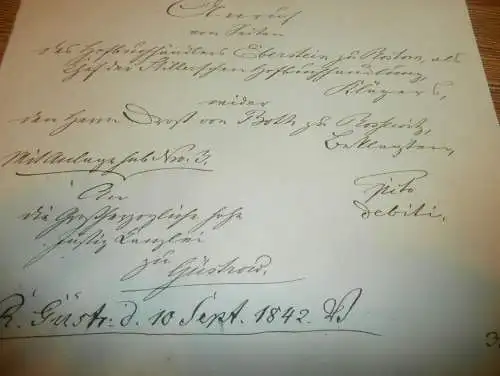 Anruf
von Seiten
des Hofbuchhändlers Eberstein zu Rostock, als
Chef der Stillerschen Hofbuchhandlung,
Klägers,
wider
den Herrn Drost von Both zu
Beklagten,
Mit Anlage sub Nro. 3.
pcto
debiti.
An
die Großherzogliche hohe
Justiz Canzlei
zu
Güstrow.
Güstr. d. 10 Sept. 1842.
3